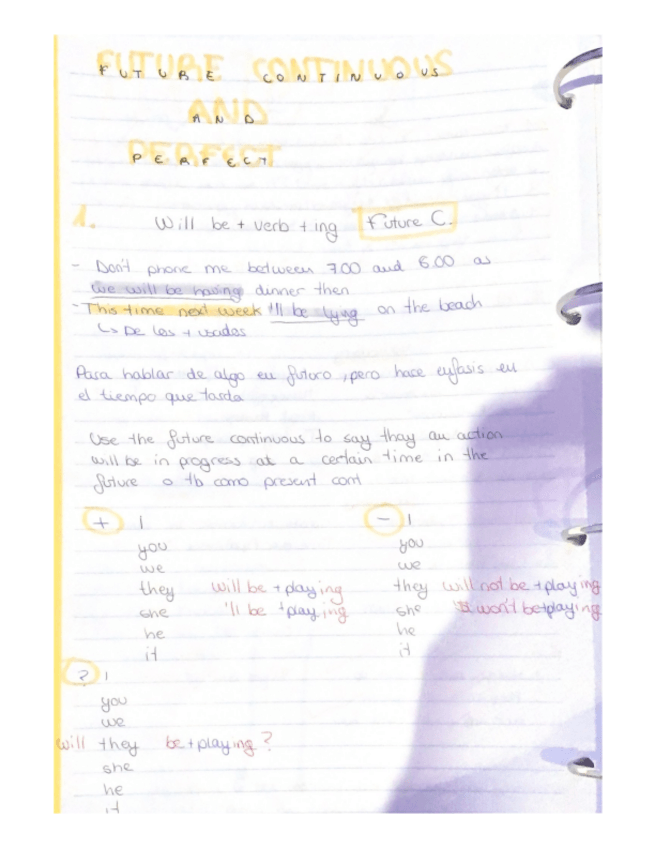 FUTURE CONTINUOUS
AND
PERFECT
1. Will be + verb + ing Future C.
- Don't phone me between 7.00 and 6.00 as
we will be having dinner then
- This time next week I'll be lying on the beach
↳ De los + usados
Para hablar de algo en futuro, pero hace enfasis en
el tiempo que tarda
Use the future continuous to say thay an action
will be in progress at a certain time in the
future o tb como present cont
+ I
you
we
they will be + playing
she 'll be + playing
he
it
- I
you
we
they will not be + playing
she won't be + playing
he
it
? I
you
we
will they be + playing ?
she
he
it